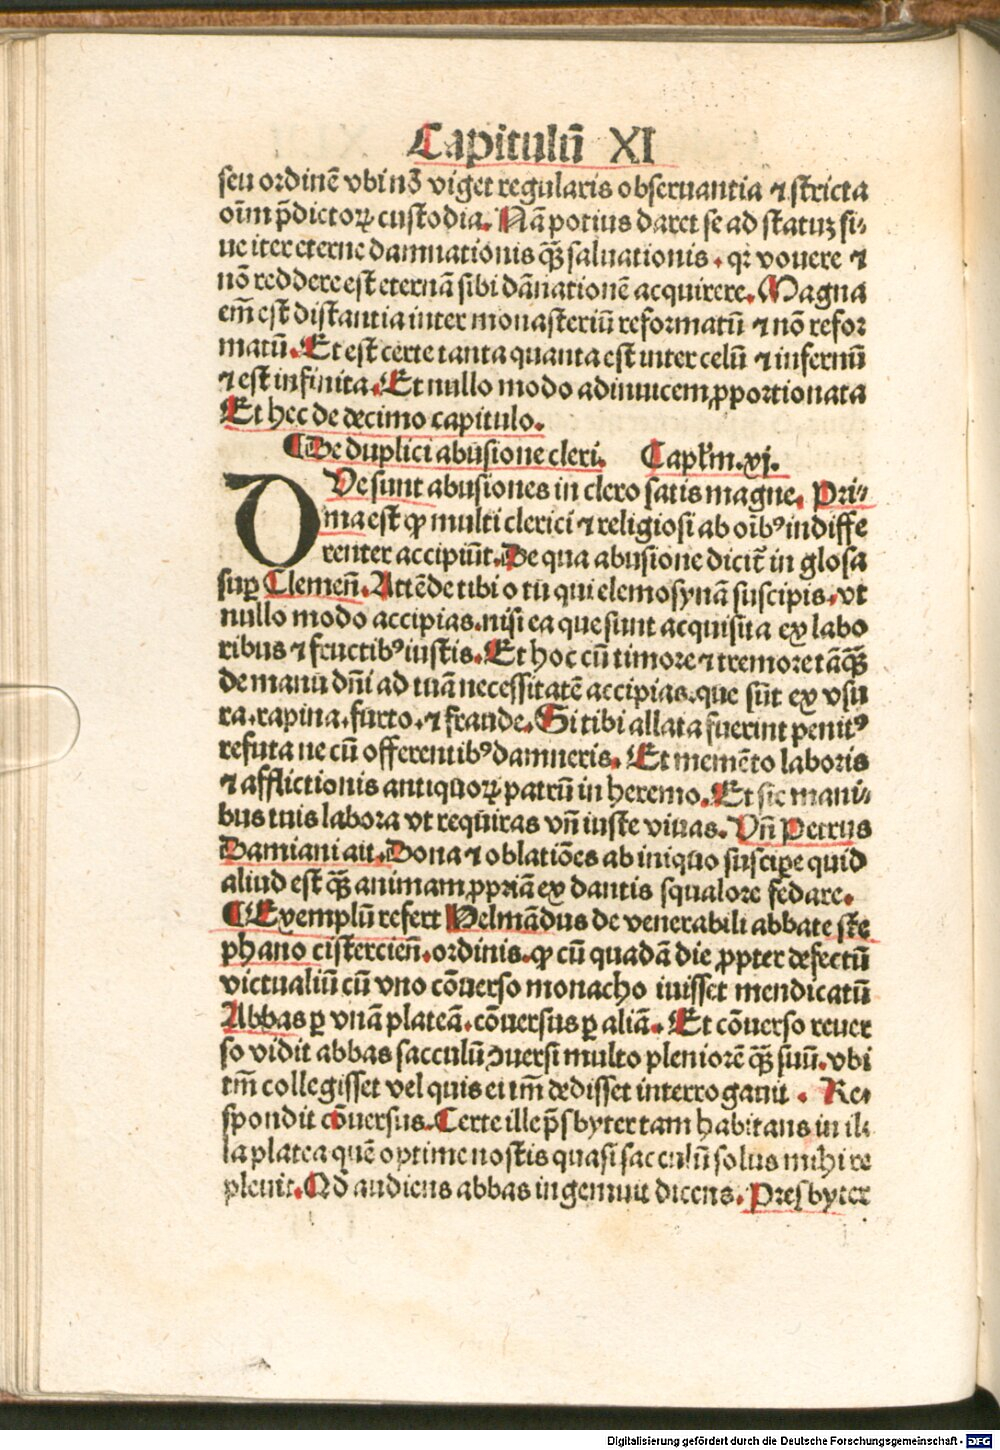 Capitulū XI
seu ordinē vbi nō viget regularis obseruantia ⁊ stricta
oīm p̄dictoꝝ custodia. Nā potius daret se ad statuꝫ si⸗
ue iter eterne damnationis qꝫ̄ saluationis. qꝛ vouere ⁊
nō reddere est eternā sibi dānationē acquirere. Magna
em̄ est distantia inter monasteriū reformatū ⁊ nō refor
matū. Et est certe tanta quanta est inter celū ⁊ infernū
⁊ est infinita. Et nullo modo adinuicem ꝓportionata
Et hec de decimo capitulo.
¶ De duplici abusione cleri. Capl̄m. xj.
DVe sunt abusiones in clero satis magne. Pri⸗
ma est ꝙ multi clerici ⁊ religiosi ab oībꝰ indiffe
renter accipiūt. De qua abusione dicit̄ in glosa
suꝑ Clemen̄. Attēde tibi o tu qui elemosynā suscipis. vt
nullo modo accipias. nisi ea que sunt acquisita ex labo
ribus ⁊ fructibꝰ iustis. Et hoc cū timore ⁊ tremore tāqꝫ̄
de manu dn̄i ad tuā necessitatē accipias. que sūt ex vsu
ra. rapina. furto. ⁊ fraude. Si tibi allata fuerint penitꝰ
refuta ne cū offerentibꝰ damneris. Et memēto laboris
⁊ afflictionis antiquoꝝ patrū in heremo. Et sic mani⸗
bus tuis labora vt requiras vn̄ iuste viuas. Vn̄ Petrus
Damiani ait. Dona ⁊ oblatiōes ab iniquo suscipe quid
aliud est qꝫ̄ animam ꝓpriā ex dantis squalore fedare.
¶ Exemplū refert Helmādus de venerabili abbate ste
phano cistercien̄. ordinis. ꝙ cū quadā die ꝓpter defectū
victualiū cū vno cōuerso monacho iuisset mendicatū
Abbas ꝑ vnā plateā. cōuersus ꝑ aliā. Et cōuerso reuer
so vidit abbas sacculū ꝯuersi multo pleniorē qꝫ̄ suū. vbi
tm̄ collegisset vel quis ei tm̄ dedisset interrogauit. Re⸗
spondit cōuersus. Certe ille p̄sbyter tam habitans in il⸗
la platea quē optime nostis quasi sacculū solus mihi re
pleuit. Qd̄ audiens abbas ingemuit dicens. Presbyter
Digitalisierung gefördert durch die Deutsche Forschungsgemeinschaft - DFG